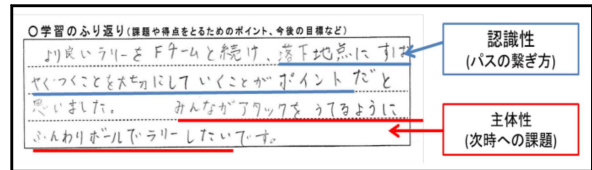 ○学習のふり返り(課題や得点をとるためのポイント、今後の目標など)
より良いラリーを Fチームと続け、落下地点にすば
やくつくことを大切にしていくことがポイントだと
思いました。 みんながアタックをうてるように
ふんわりボールでラリーしたいです。
認識性
(パスの繋ぎ方)
主体性
(次時への課題)